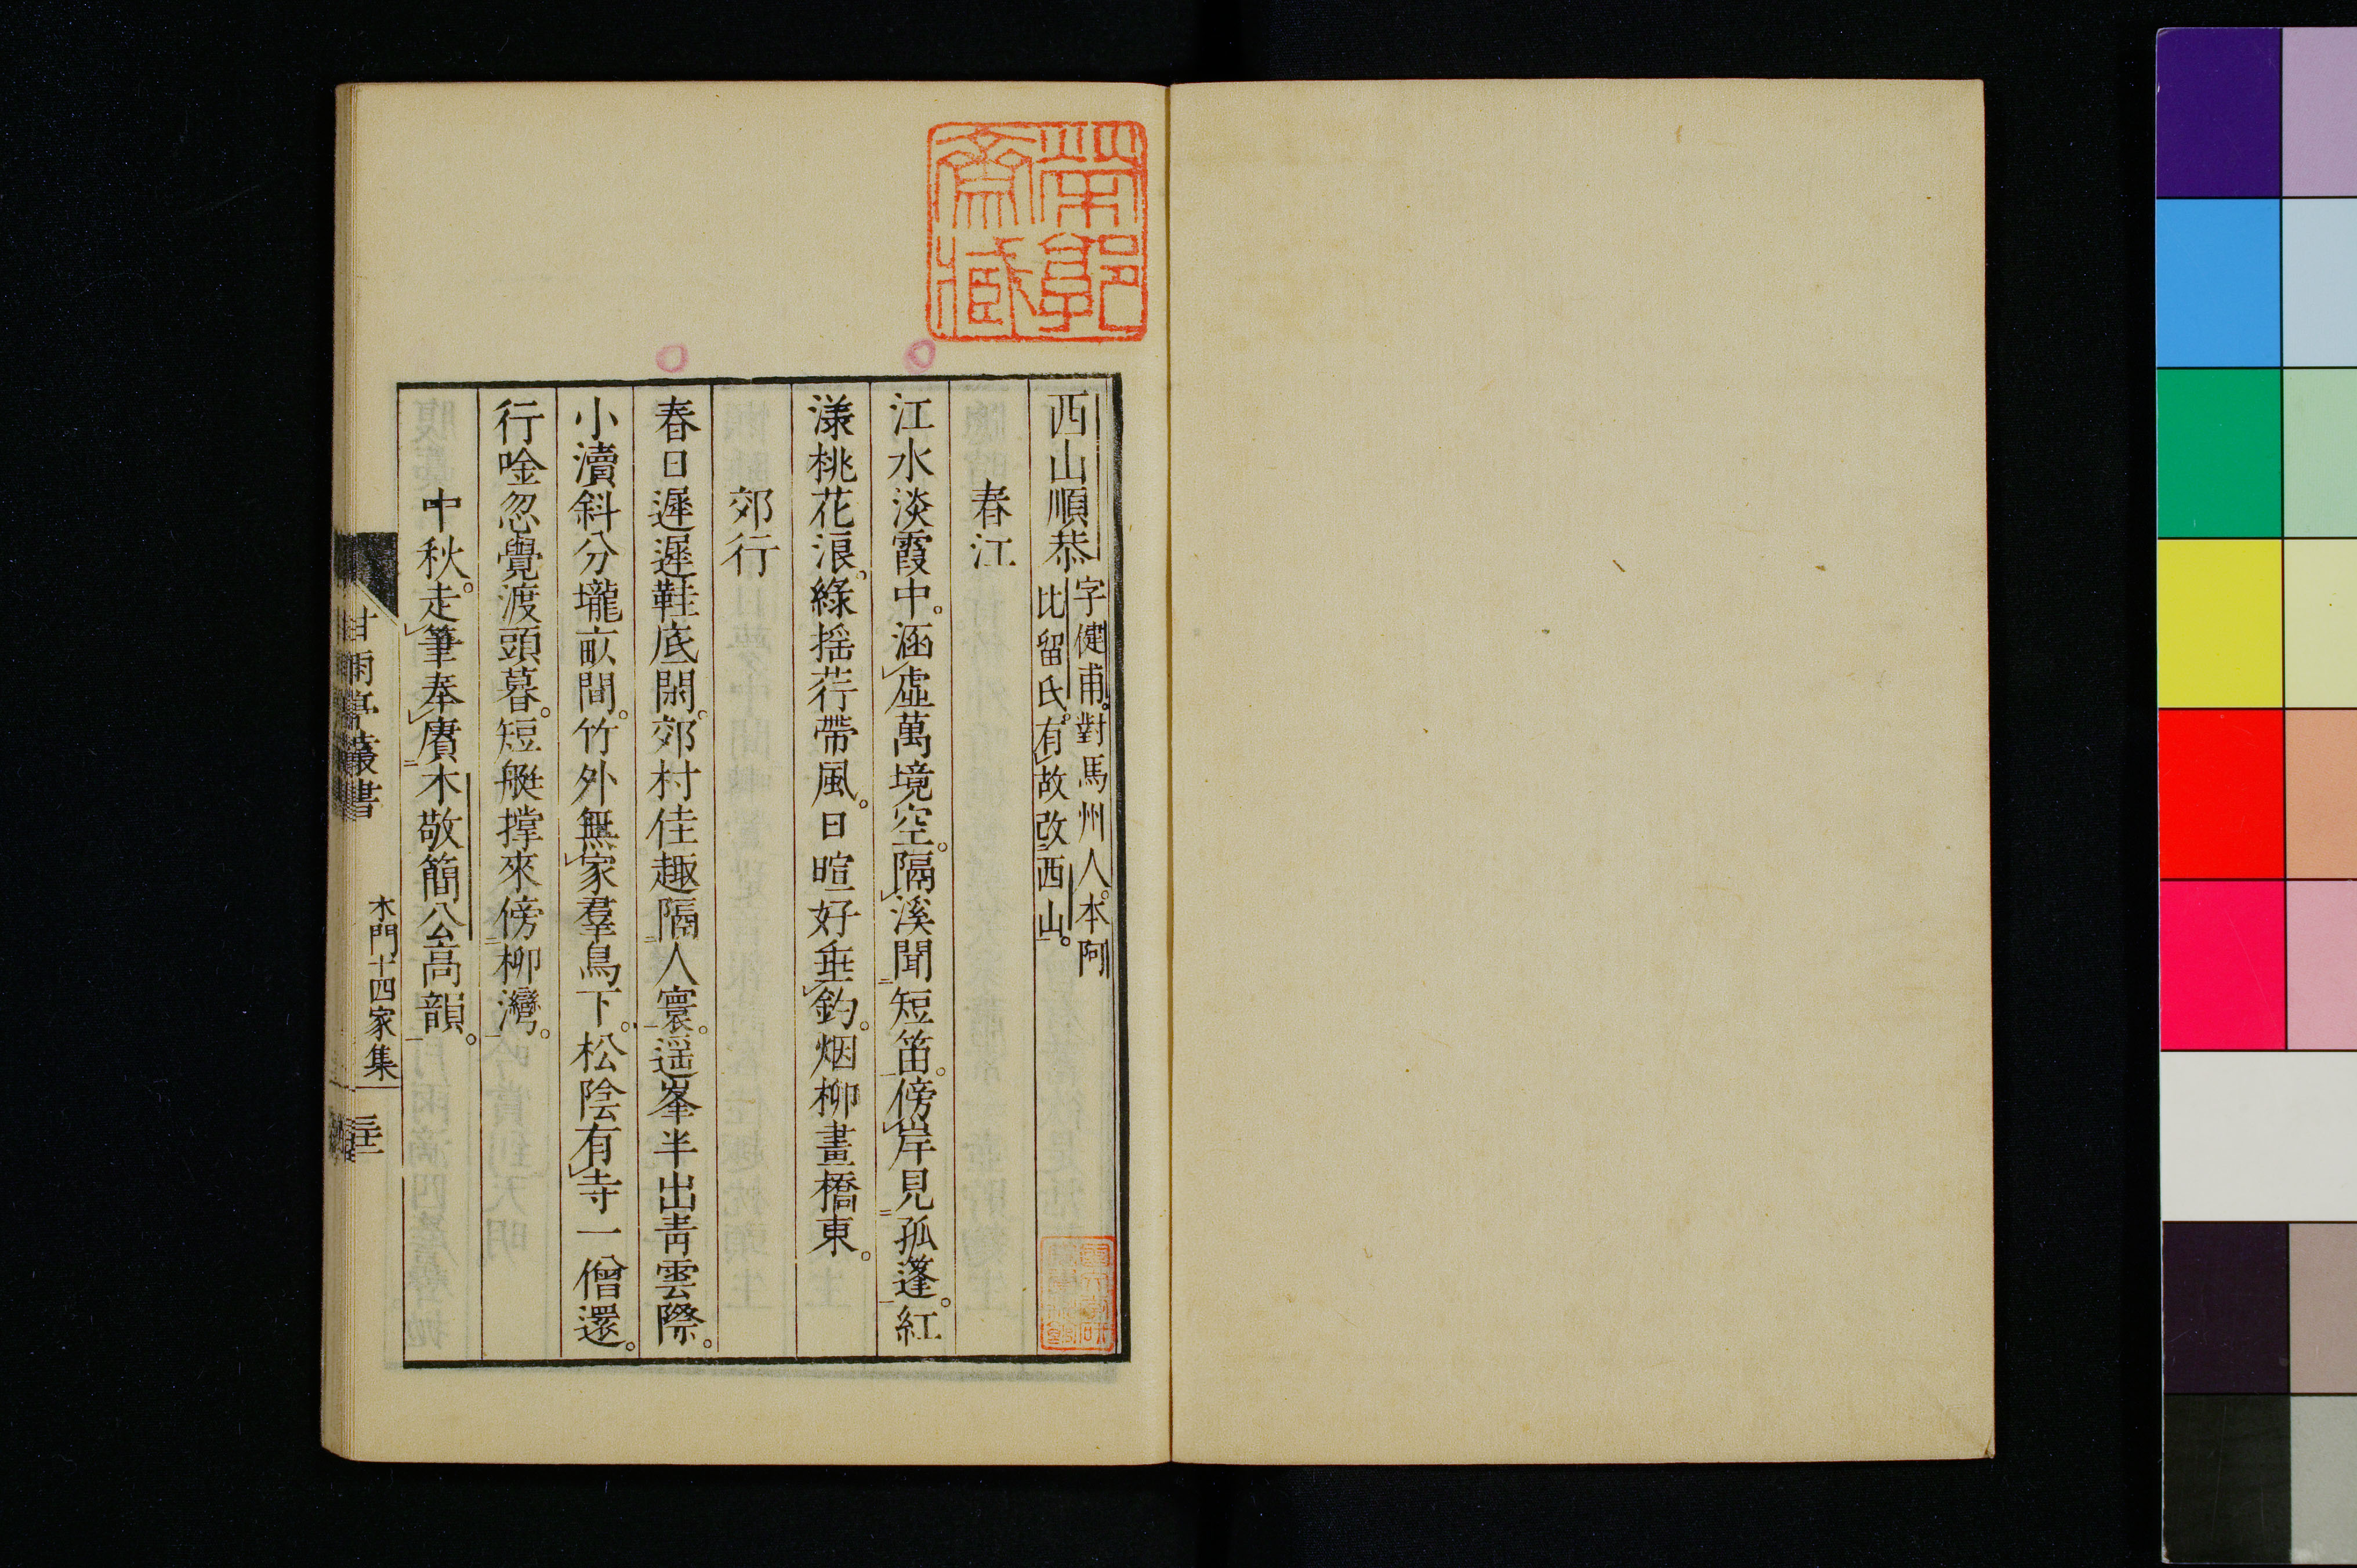 西山順恭 字健甫。對馬州人。本阿
比留氏。有故改西山。
春江
江水淡霞中。涵虛萬境空。隔溪聞短笛。傍岸見孤篷。紅
漾桃花浪。綠搖荇帶風。日暄好垂釣。烟柳畫橋東。
郊行
春日遲遲鞋底閑。郊村佳趣隔人寰。遥峯半出青雲際。
小瀆斜分壠畝間。竹外無家羣鳥下。松陰有寺一僧還。
行唫忽覺渡頭暮。短艇撐來傍柳灣。
中秋。走筆奉賡木敬簡公高韻。
甘雨亭叢書
木門十四家集